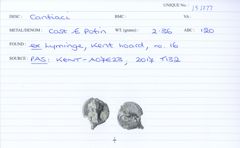 UNIQUE No:
DESC: Cantiaci BMC: VA:
METAL/DENOM: Cast Æ Potin WT (grms): 2.36 ABC: 120
FOUND: ex Lyminge, Kent hoard, no. 16
SOURCE: PAS: KENT-A07E23, 2017 T132